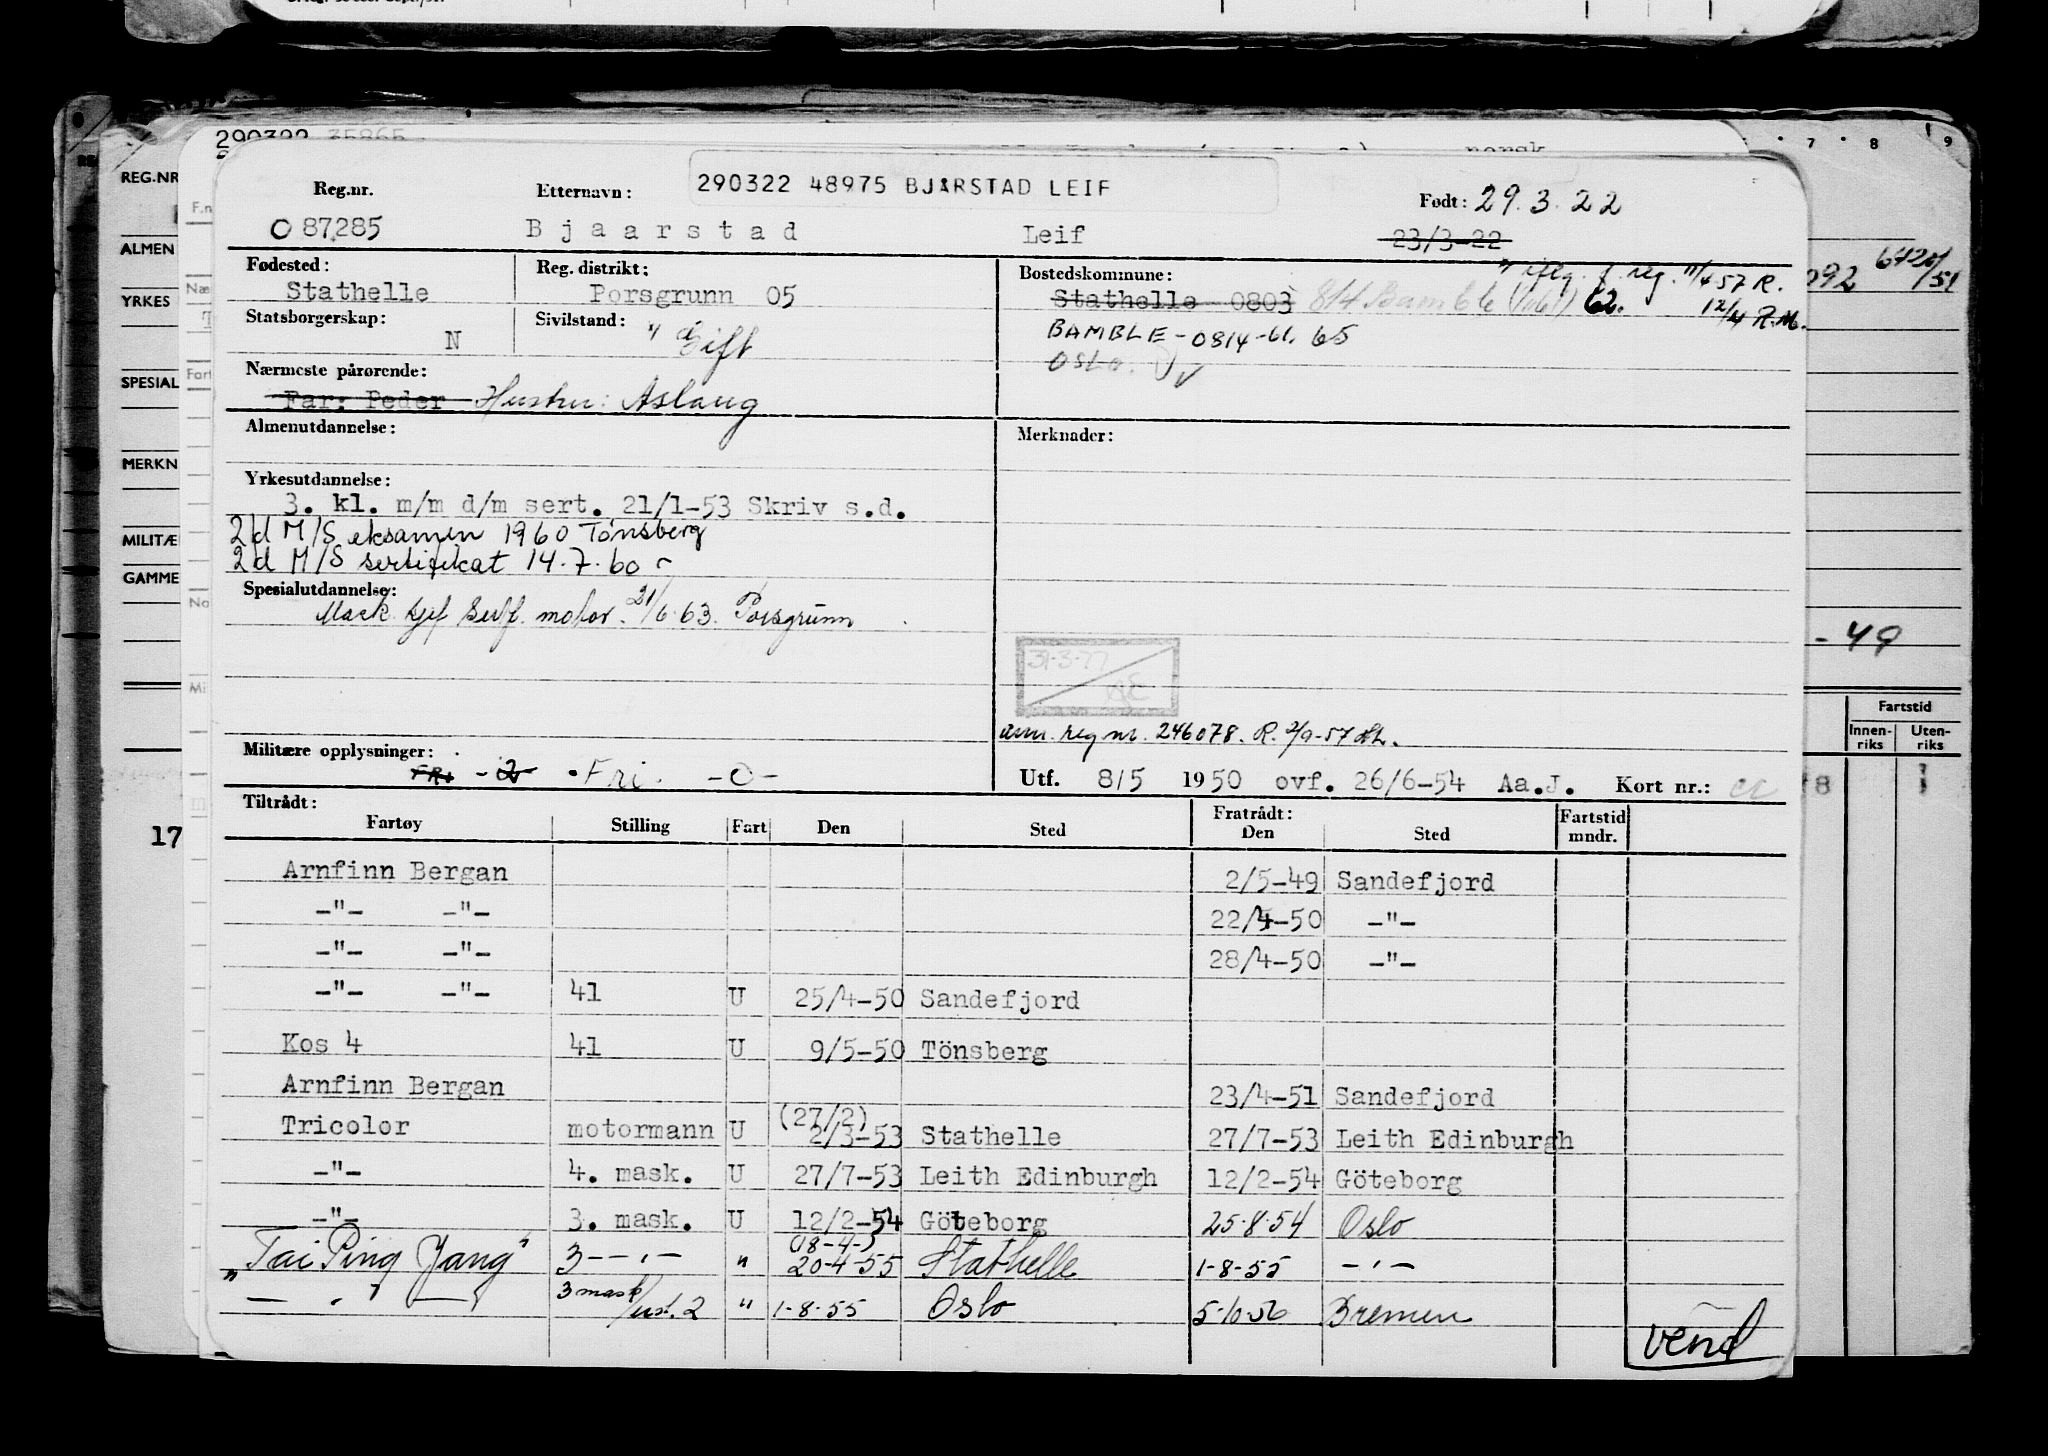 290322 35865
norsk
7 8 9
REG.NR
ALMEN
YRKES
SPESIAL
MERKN
MILITÆ
GAMME
17
092 6420/51
- 49
Fartstid
Innen-riks Uten-riks
Reg.nr. Etternavn: 290322 48975 BJARSTAD LEIF Født: 29.3.22
O 87285 Bjaarstad Leif 23/3-22
Fødested: Reg. distrikt: Bostedskommune: " iflg. f. reg. 11/4 57 R.
Stathelle Porsgrunn 05 Stathelle 0803 814 Bamble (1/61) 62. 12/4 R.M.
Statsborgerskap: Sivilstand:
N " Gift BAMBLE - 0814 - 61. 65
OSLO.
Nærmeste pårørende:
Far: Peder Hustru: Aslaug
Almenutdannelse: Merknader:
Yrkesutdannelse:
3. kl. m/m d/m sert. 21/1-53 Skriv s.d.
2d M/S eksamen 1960 Tønsberg
2d M/S sertifikat 14.7.60
Spesialutdannelse:
Mask. sjef motor. 21/6.63. Porsgrunn
31-3-77
reg nr. 246078. R. 2/9-57
Militære opplysninger:
FRI - 2 • Fri. -0-
Utf. 8/5 1950 ovf. 26/6-54 Aa.J. Kort nr.:
Tiltrådt: Fratrådt:
Fartøy Stilling Fart Den Sted Den Sted Fartstid mndr.
Arnfinn Bergan 2/5-49 Sandefjord
-"- -"- 22/4-50 -"-
-"- -"- 28/4-50 -"-
-"- -"- 41 U 25/4-50 Sandefjord
Kos 4 41 U 9/5-50 Tönsberg
Arnfinn Bergan 23/4-51 Sandefjord
Tricolor motormann U (27/2) 2/3-53 Stathelle 27/7-53 Leith Edinburgh
-"- 4. mask. U 27/7-53 Leith Edinburgh 12/2-54 Göteborg
-"- 3. mask. U 12/2-54 Göteborg 25.8.54 Oslo
"Tai Ping Yang" 3 - - ' - " (18-4-) 20-4-55 Stathelle 1-8-55 - ' -
- " - 3 mask/ust. 2 " 1-8-55 Oslo 5-10-56 Bremen
vend